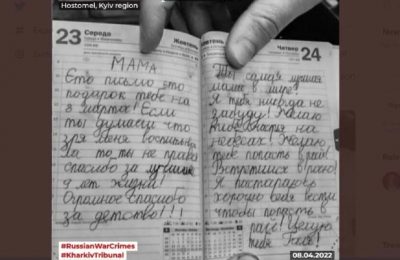 Hostomel, Kyiv region
23 Середа
Жовтень
МАМА
Єто письмо ето
подарок тебе на
8 марта! Если
ты думаеш что
зря меня воспитыва
ла то ты не права
спасибо за лучшие
9 лет жизни!
Огромное спасибо
за детство!!!
Четвер 24
Ты самая лучшая
мама в мире!
Я тебя никогда не
забуду! Желаю
на
небесах! Желаю
тебе попасть в рай!
Встретимся в раю!
Я постараюсь
хорошо себя вести
чтобы попасть в
рай! Целую
тебя
#RussianWarCrimes
#KharkivTribunal
08.04.2022